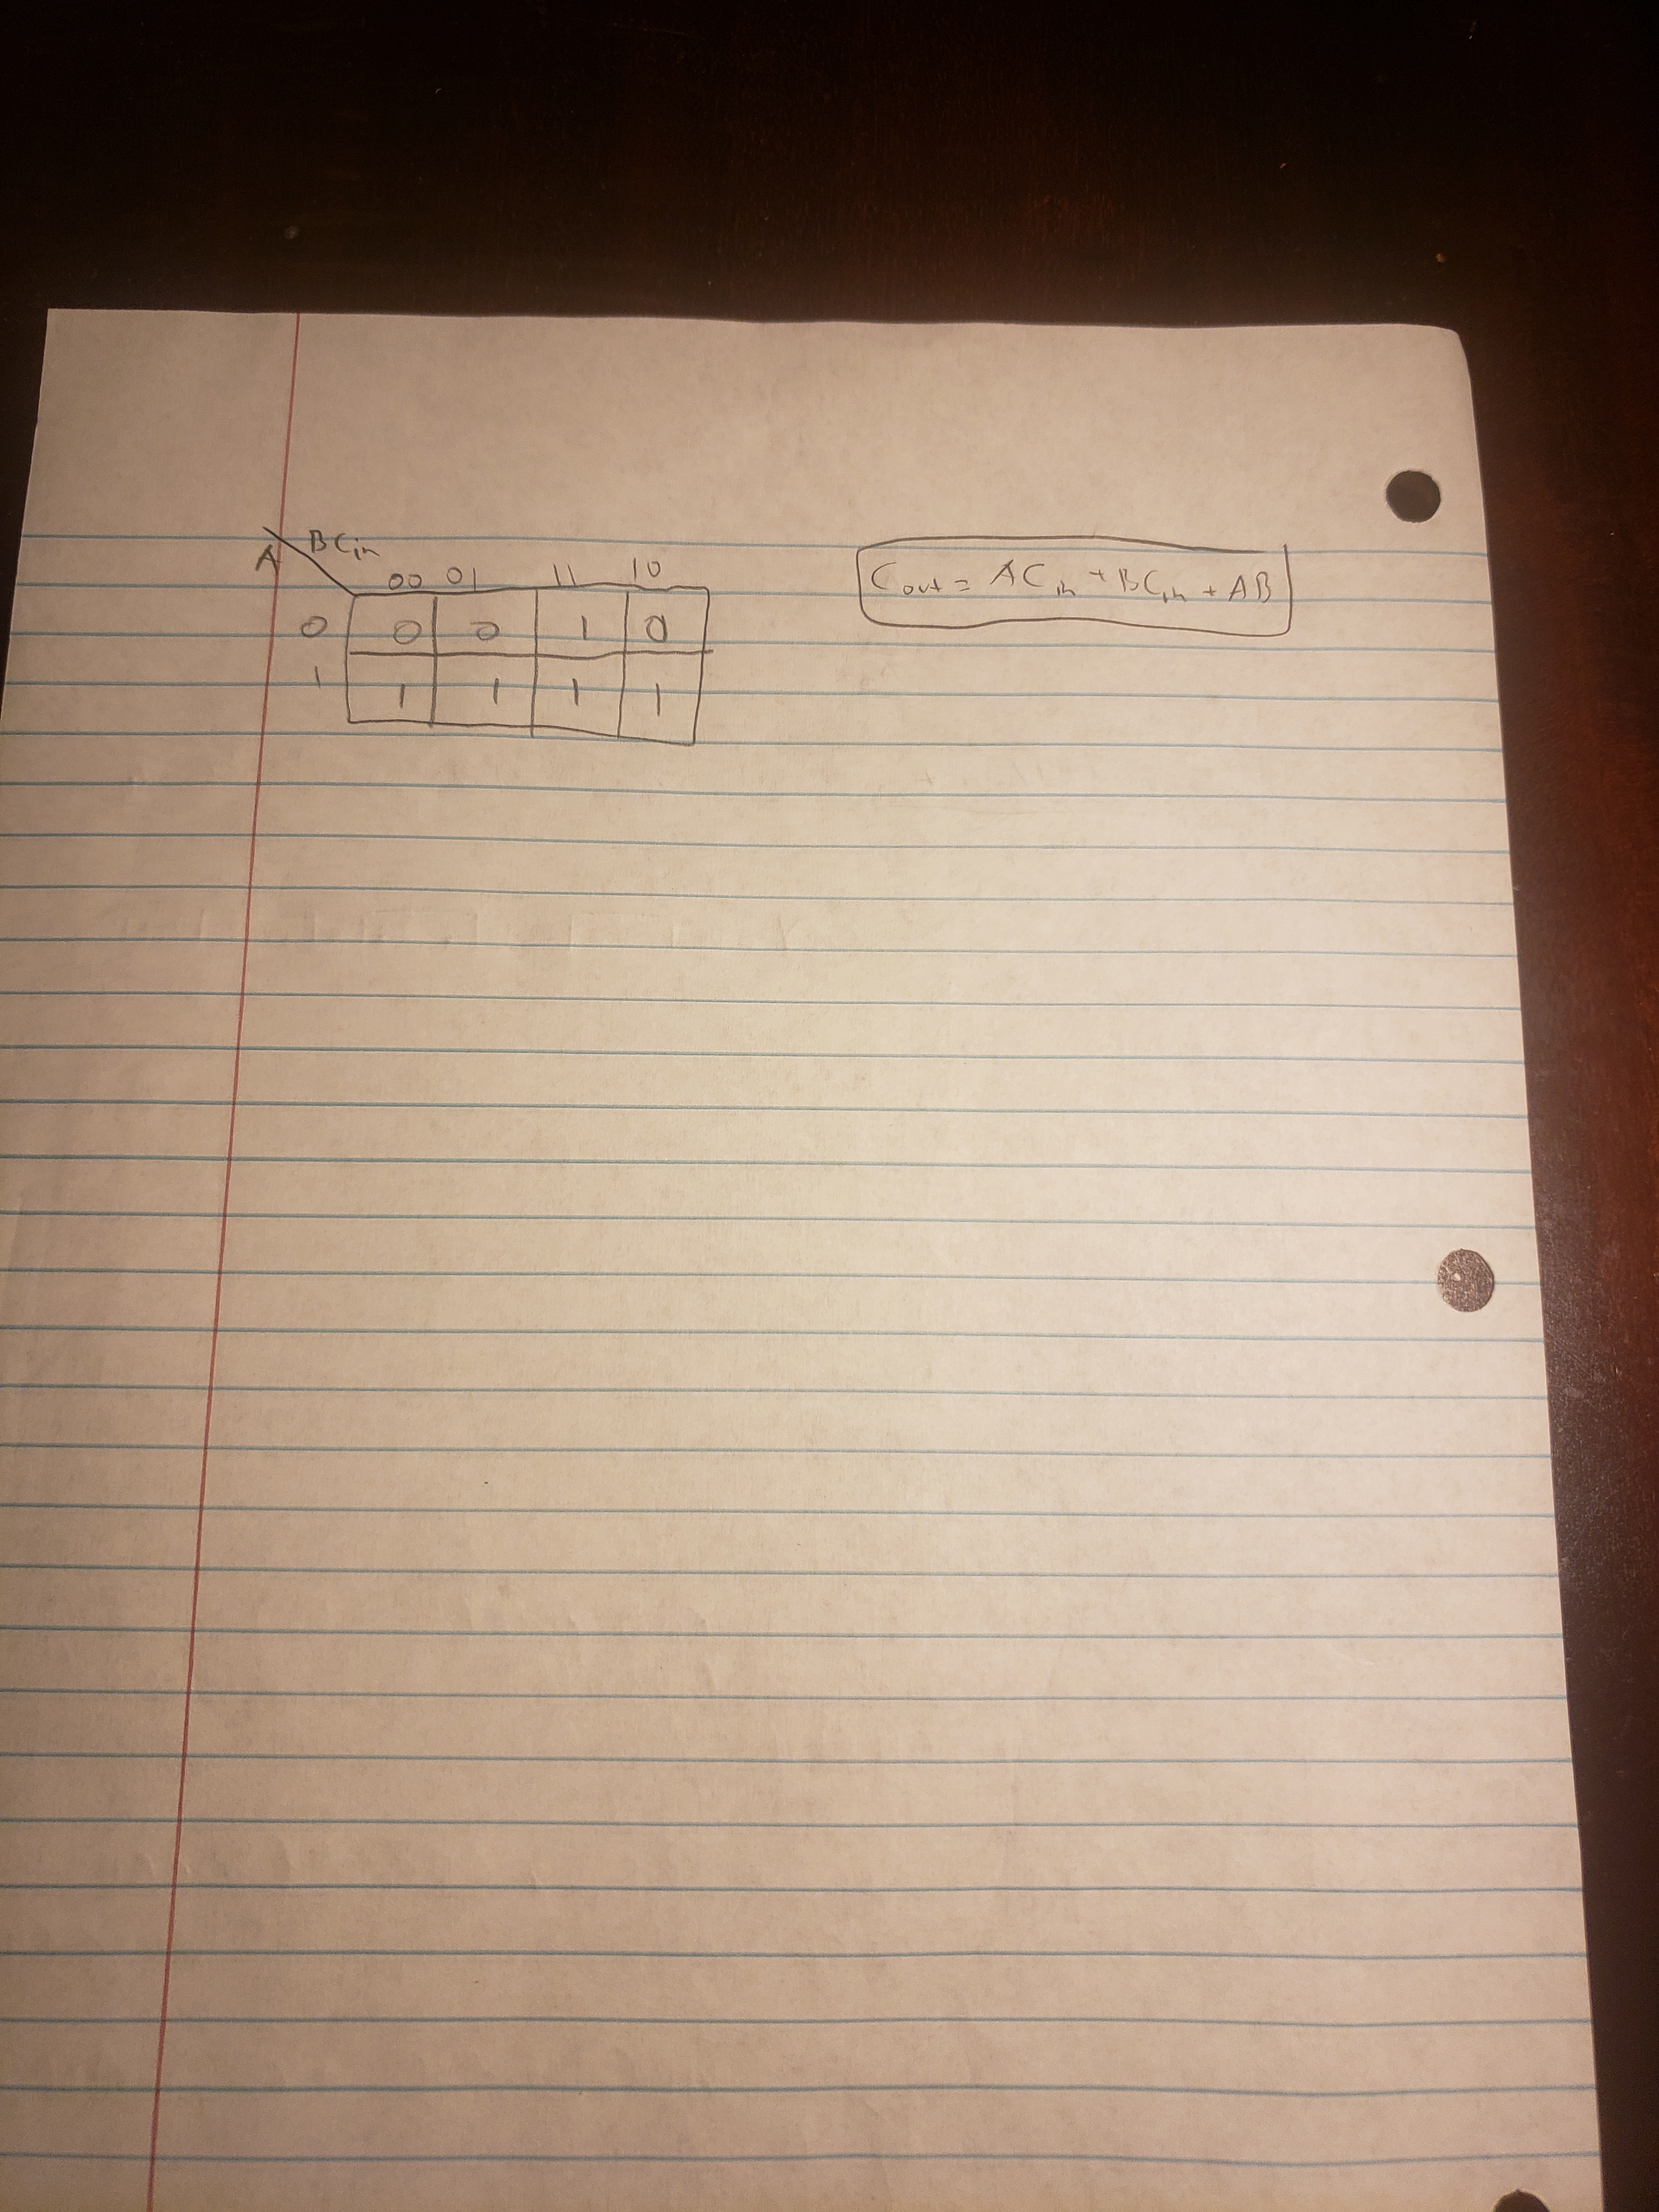 A BCin
00 01 11 10
0 0 0 1 0
1 1 1 1 1
Cout = ACin + BCin + AB